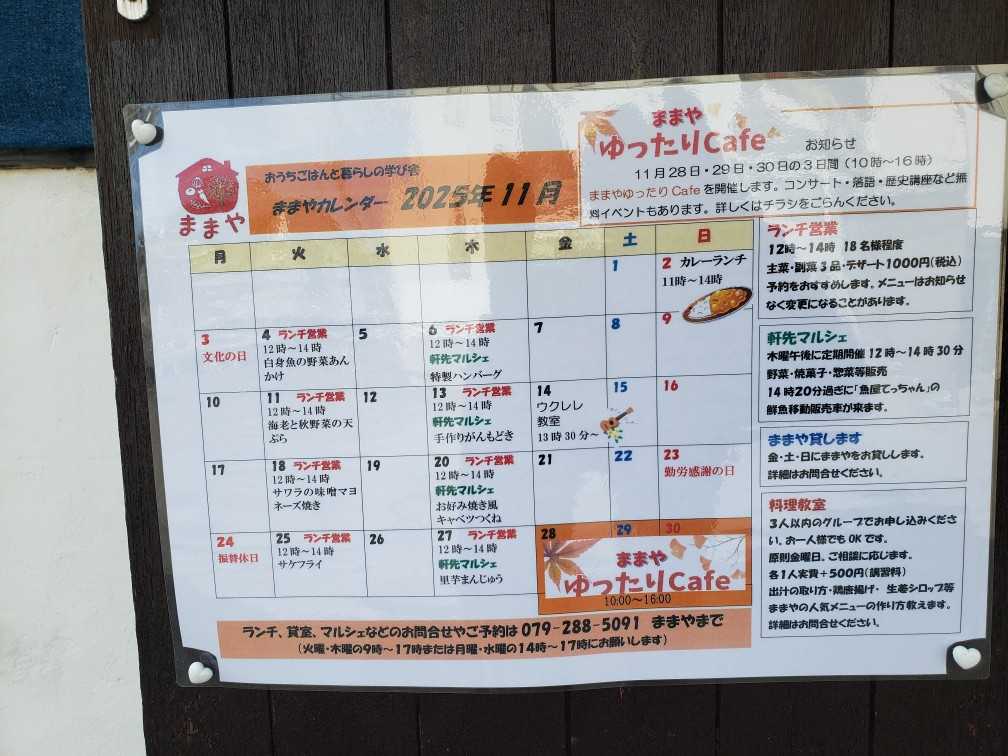 ままや
おうちごはんと暮らしの学び舎
ままやカレンダー 2025年11月
ままや
ゆったりCafe お知らせ
11月28日・29日・30日の3日間(10時~16時)
ままやゆったりCafeを開催します。コンサート・落語・歴史講座など無
料イベントもあります。詳しくはチラシをごらんください。
月 火 水 木 金 土 日
1
2 カレーランチ
11時~14時
3
文化の日
4 ランチ営業
12時~14時
白身魚の野菜あん
かけ
5
6 ランチ営業
12時~14時
軒先マルシェ
特製ハンバーグ
7
8
9
10
11 ランチ営業
12時~14時
海老と秋野菜の天
ぷら
12
13 ランチ営業
12時~14時
軒先マルシェ
手作りがんもどき
14
ウクレレ
教室
13時30分~
15
16
17
18 ランチ営業
12時~14時
サワラの味噌マヨ
ネーズ焼き
19
20 ランチ営業
12時~14時
軒先マルシェ
お好み焼き風
キャベツつくね
21
22
23
勤労感謝の日
24
振替休日
25 ランチ営業
12時~14時
サケフライ
26
27 ランチ営業
12時~14時
軒先マルシェ
里芋まんじゅう
28 29 30
ままや
ゆったりCafe
10:00~16:00
ランチ営業
12時~14時 18名様程度
主菜・副菜3品・デザート1000円(税込)
予約をおすすめします。メニューはお知らせ
なく変更になることがあります。
軒先マルシェ
木曜午後に定期開催 12時~14時30分
野菜・焼菓子・惣菜等販売
14時20分過ぎに「魚屋てっちゃん」の
鮮魚移動販売車が来ます。
ままや貸します
金・土・日にままやをお貸しします。
詳細はお問合せください。
料理教室
3人以内のグループでお申し込みくださ
い。お一人様でもOKです。
原則金曜日、ご相談に応じます。
各1人実費+500円(講習料)
出汁の取り方・鶏唐揚げ・生姜シロップ等
ままやの人気メニューの作り方教えます。
詳細はお問合せください。
ランチ、貸室、マルシェなどのお問合せやご予約は 079-288-5091 ままやまで
(火曜・木曜の9時~17時または月曜・水曜の14時~17時にお願いします)